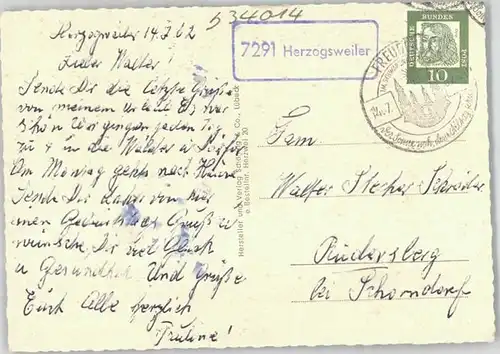 534014
7291 Herzogsweiler
DEUTSCHE BUNDESPOST
10
FREUD
14.7.
Herzogsweiler 14.7.62
Lieber Walter!
Sende Dir die letzte Grüße
von meinem Urlaub Es war
schön Wir gingen jeden Tag
zu 4 in die Wälder
Am Montag gehts nach Hause
Sende Dir daher von hier
einen Geburtstags Gruß u
wünsche Dir viel Glück
u Gesundheit Und Grüße
Euch Alle herzlich
Pauline!
Hersteller und Verlag Schöning & Co., Lübeck
Fam
Walter Stecher Schreiber
Rudersberg
bei Schorndorf